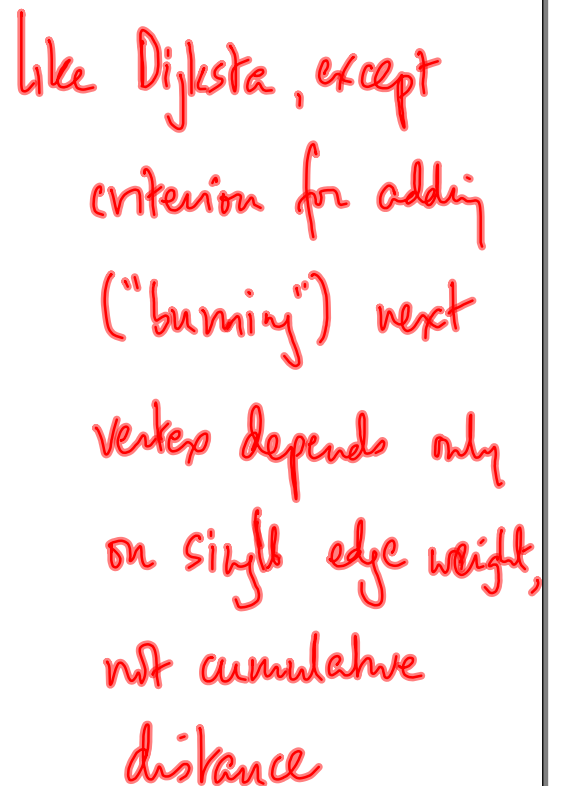 Like Dijksta, except
criterion for adding
("burning") next
vertex depends only
on single edge weight,
not cumulative
distance